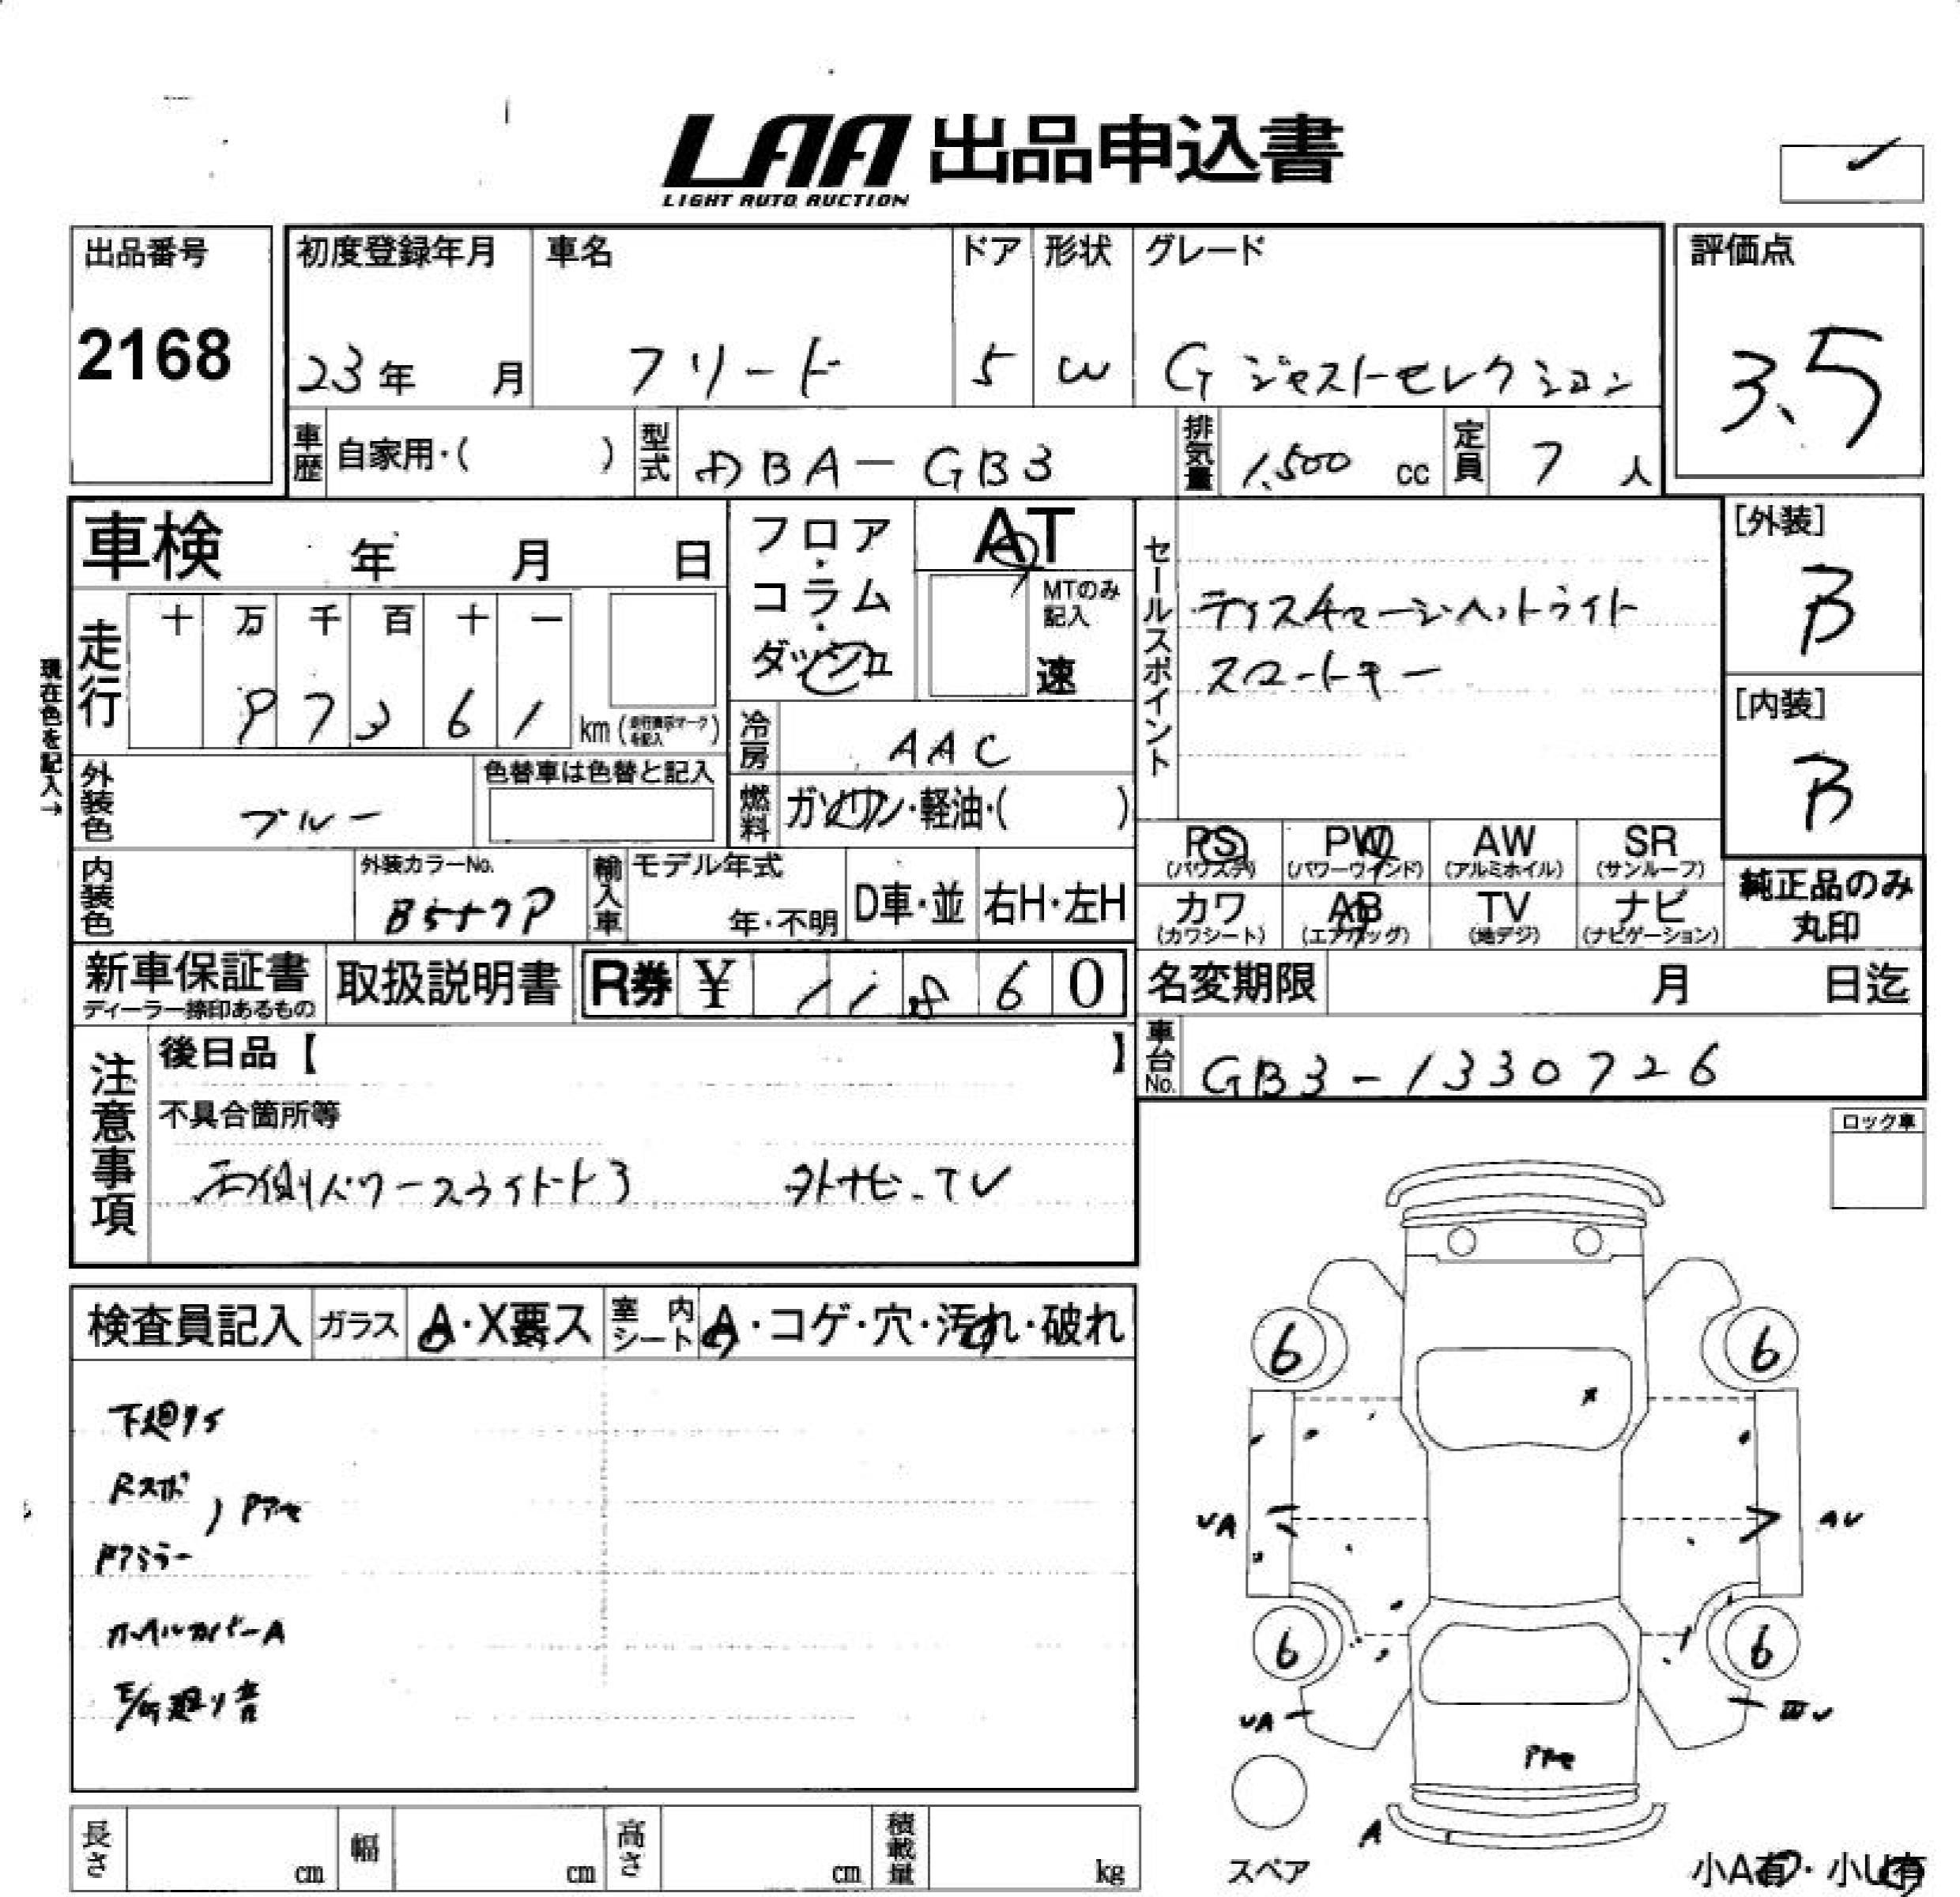 LAA 出品申込書
LIGHT AUTO AUCTION
出品番号
2168
初度登録年月
23年 月
車名
フリード
ドア
5
形状
W
グレード
G ジャストセレクション
評価点
3.5
車歴 自家用・( )
型式 DBA-GB3
排気量 1,500 cc
定員 7 人
車検 年 月 日
フロア・コラム・ダッシュ
AT
MTのみ記入
速
セールスポイント
ディスチャージヘットライト
スマートキー
[外装]
B
[内装]
B
現在色を記入→
走行
十 万 千 百 十 一
9 7 3 6 1 km
冷房 AAC
外装色 ブルー
色替車は色替と記入
燃料 ガソリン・軽油・( )
内装色
外装カラーNo.
輸入車
モデル年式
年・不明
D車・並
右H・左H
PS (パワステ)
PW (パワーウインド)
AW (アルミホイル)
SR (サンルーフ)
カワ (カワシート)
AB (エアバッグ)
TV (地デジ)
ナビ (ナビゲーション)
純正品のみ
丸印
新車保証書
ディーラー捺印あるもの
取扱説明書
R券 ¥ 1 1 8 6 0
名変期限 月 日迄
車台No. GB3-1330726
注意事項
後日品【 】
不具合箇所等
両側パワースライドドア 外ナビ.TV
ロック車
検査員記入
ガラス A・X要ス
室内シート A・コゲ・穴・汚れ・破れ
下廻サビ
Rスポ
ドアミラー
ホイールカバーA
6
6
VA
AV
6
6
VA
A
スペア
小A有・小U有
長さ cm
幅 cm
高さ cm
積載量 kg